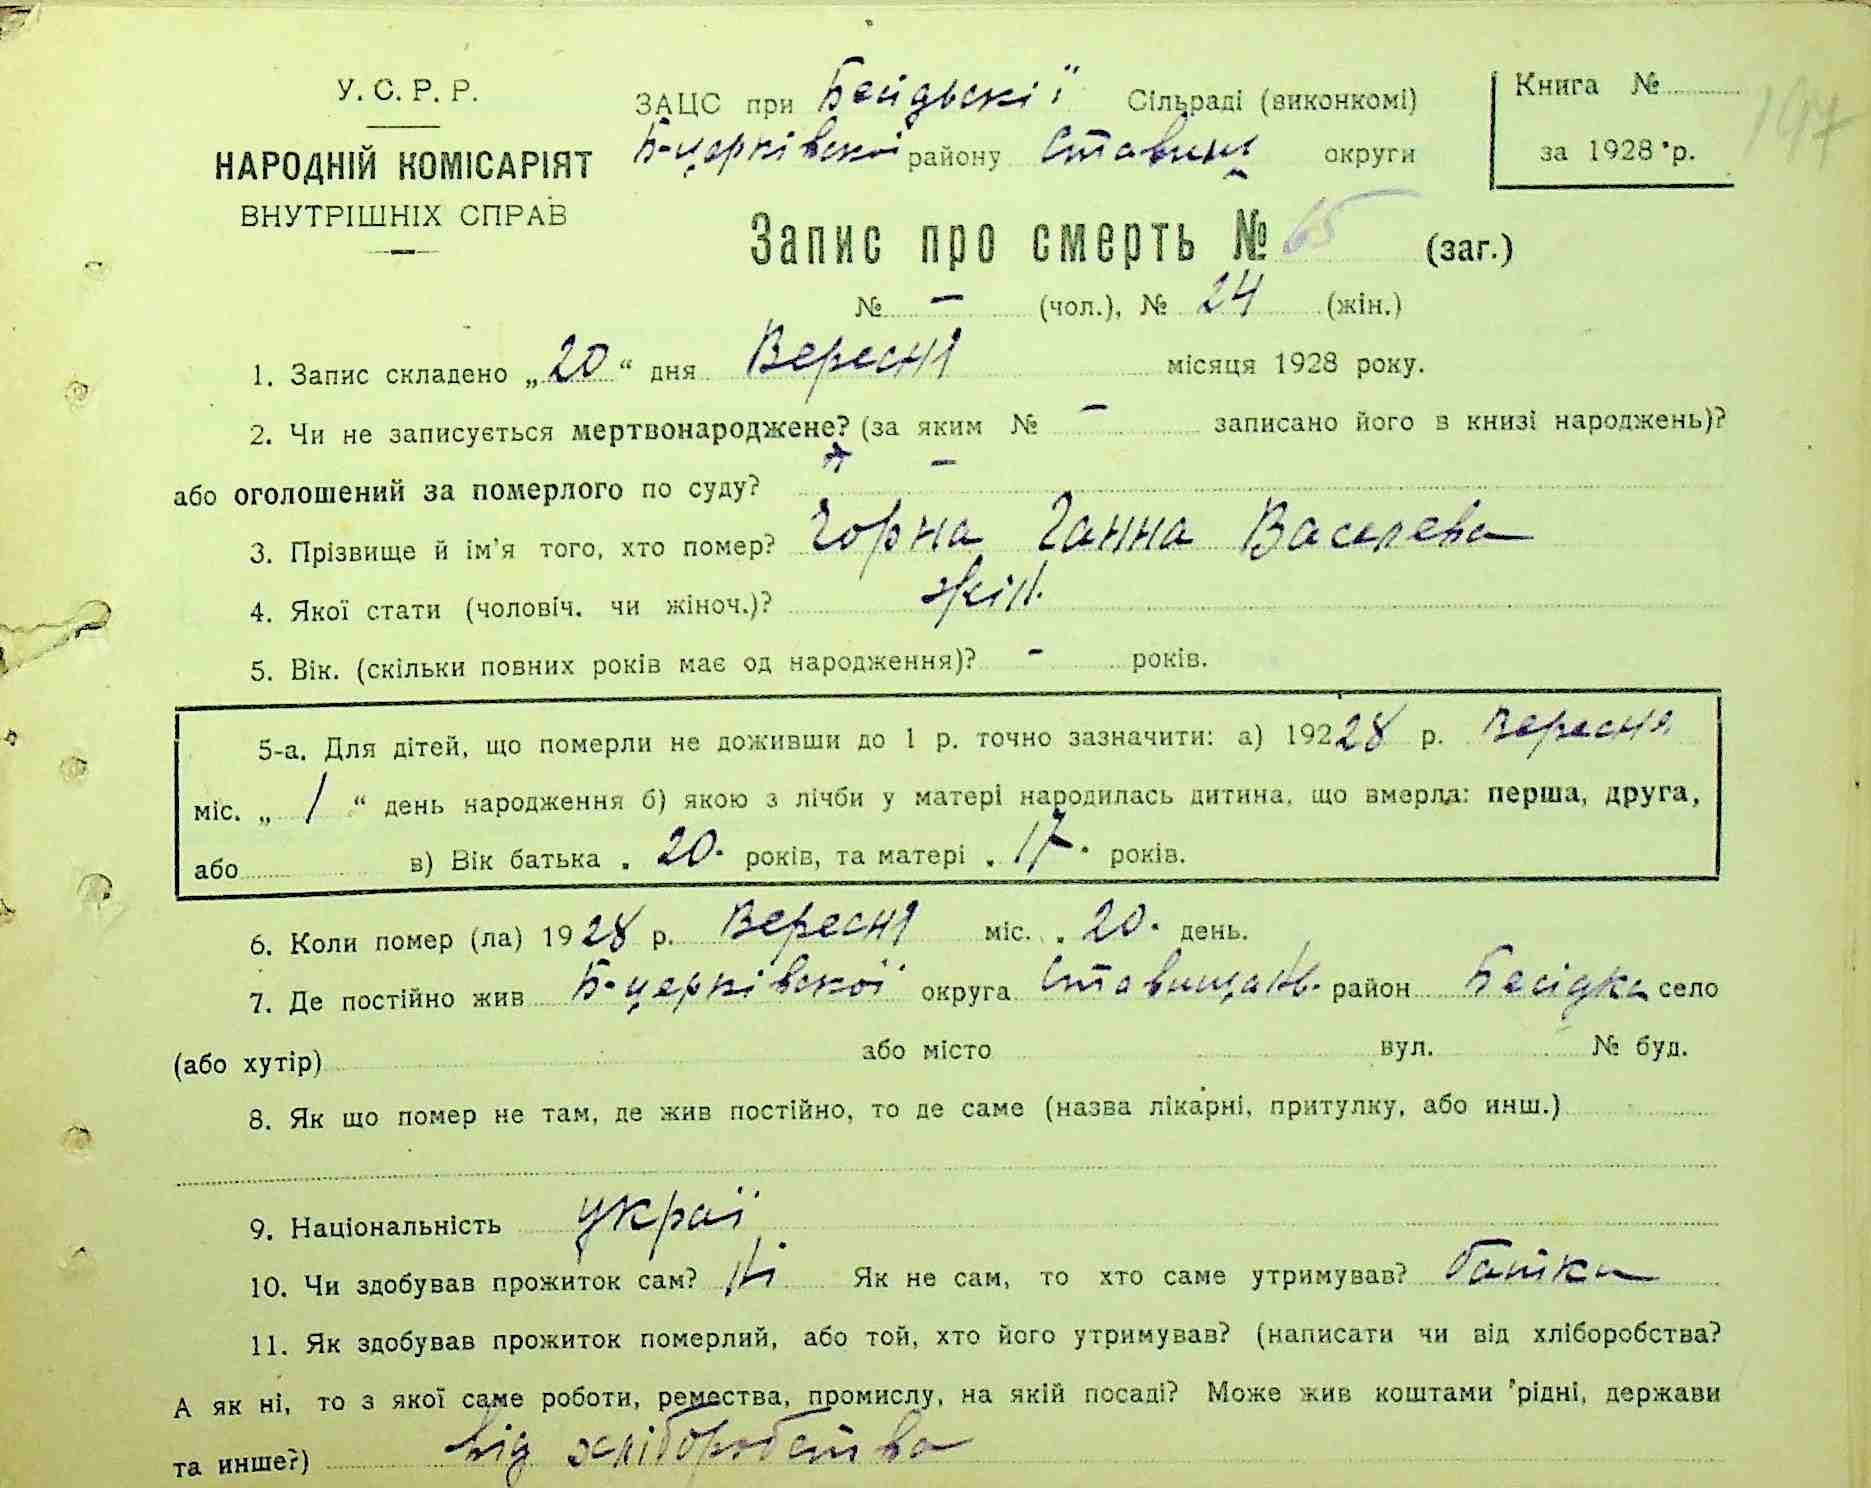 У.С.Р.Р.
НАРОДНІЙ КОМІСАРІЯТ
ВНУТРІШНІХ СПРАВ
ЗАЦС при Бесідьскії Сільраді (виконкомі)
Б-церківскої району Ставищ округи
Книга №
за 1928 р.
197
Запис про смерть № 65 (заг.)
№ – (чол.), № 24 (жін.)
1. Запис складено „20“ дня Вересня місяця 1928 року.
2. Чи не записується мертвонароджене? (за яким № – записано його в книзі народжень)?
або оголошений за померлого по суду? –
3. Прізвище й ім'я того, хто помер? Чорна Ганна Васелева
4. Якої стати (чоловіч. чи жіноч.)? жін.
5. Вік. (скільки повних років має од народження)? - років.
5-а. Для дітей, що померли не доживши до 1 р. точно зазначити: а) 19228 р. Вересня
міс. „ 1 “ день народження б) якою з лічби у матері народилась дитина, що вмерла: перша, друга,
або в) Вік батька . 20. років, та матері . 17. років.
6. Коли помер (ла) 1928 р. Вересня міс. . 20. день.
7. Де постійно жив Б-церківскої округа Ставищанс. район Бесідка село
(або хутір) або місто вул. № буд.
8. Як що помер не там, де жив постійно, то де саме (назва лікарні, притулку, або инш.)
9. Національність украї
10. Чи здобував прожиток сам? Ні Як не сам, то хто саме утримував? батки
11. Як здобував прожиток померлий, або той, хто його утримував? (написати чи від хліборобства?
А як ні, то з якої саме роботи, ремества, промислу, на якій посаді? Може жив коштами рідні, держави
та инше?) від хліборобства